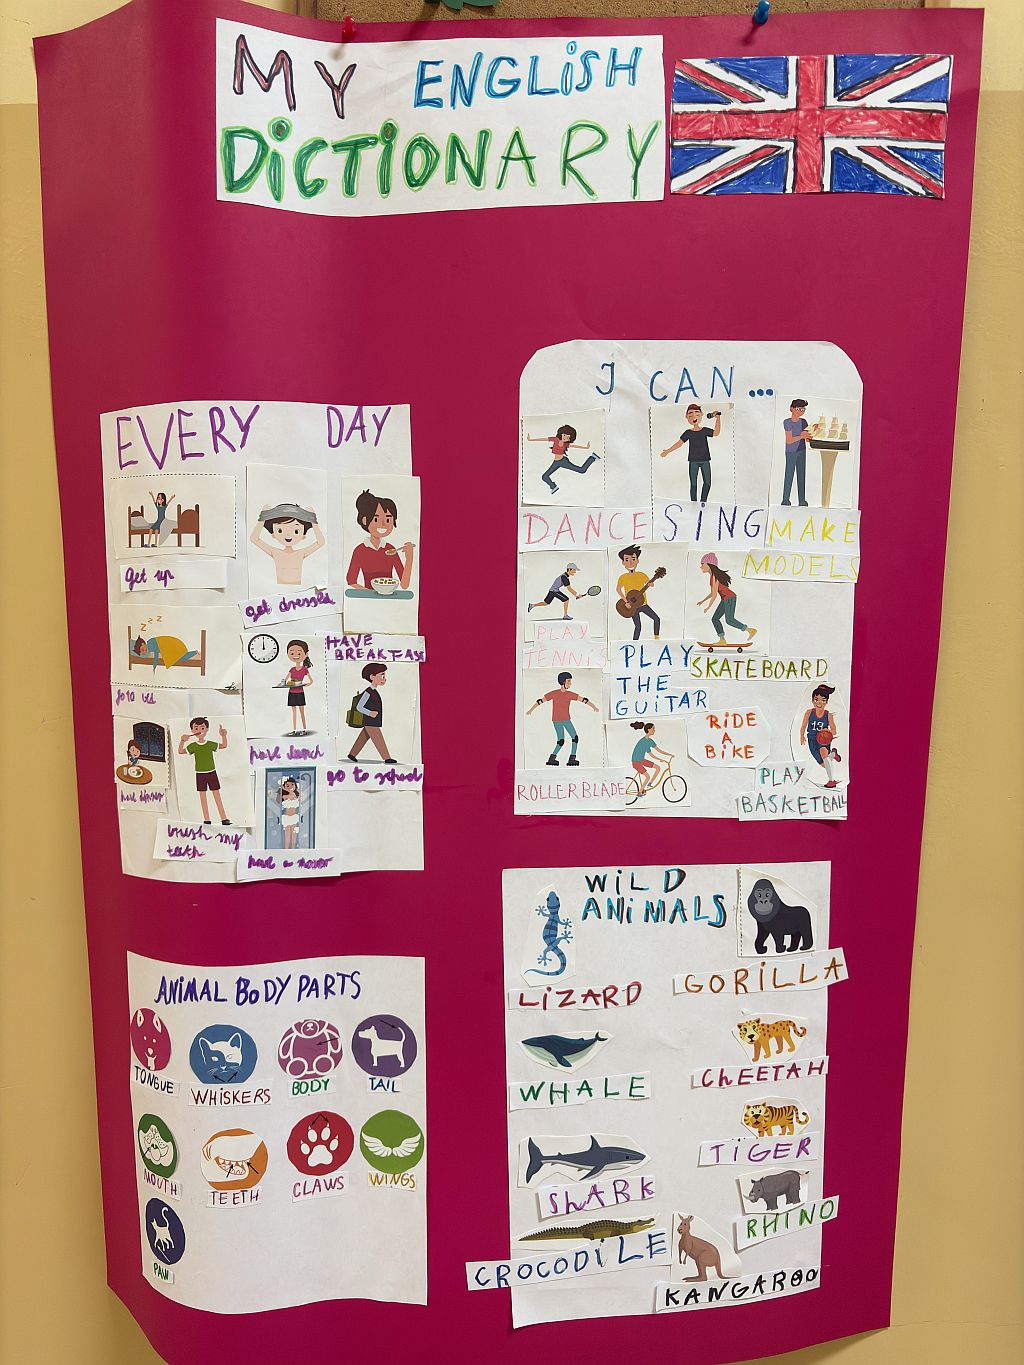 MY ENGLISH
DICTIONARY
EVERY DAY
get up
get dressed
HAVE
BREAKFAST
go to
have lunch
go to school
have dinner
brush my
teeth
have a
I CAN...
DANCE
SING
MAKE
MODELS
PLAY
TENNIS
PLAY
THE
GUITAR
SKATEBOARD
ROLLERBLADE
RIDE
A
BIKE
13
PLAY
BASKETBALL
ANIMAL BODY PARTS
TONGUE
WHISKERS
BODY
TAIL
MOUTH
TEETH
CLAWS
WINGS
PAW
WILD
ANIMALS
LIZARD
GORILLA
WHALE
CHEETAH
TIGER
SHARK
RHINO
CROCODILE
KANGAROO